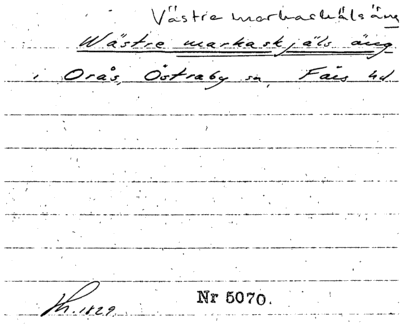 Västre markaskälsäng
Wästre markaskjäls äng
i Orås, Östraby sn, Färs hd
Sk. 1829. Nr 5070.